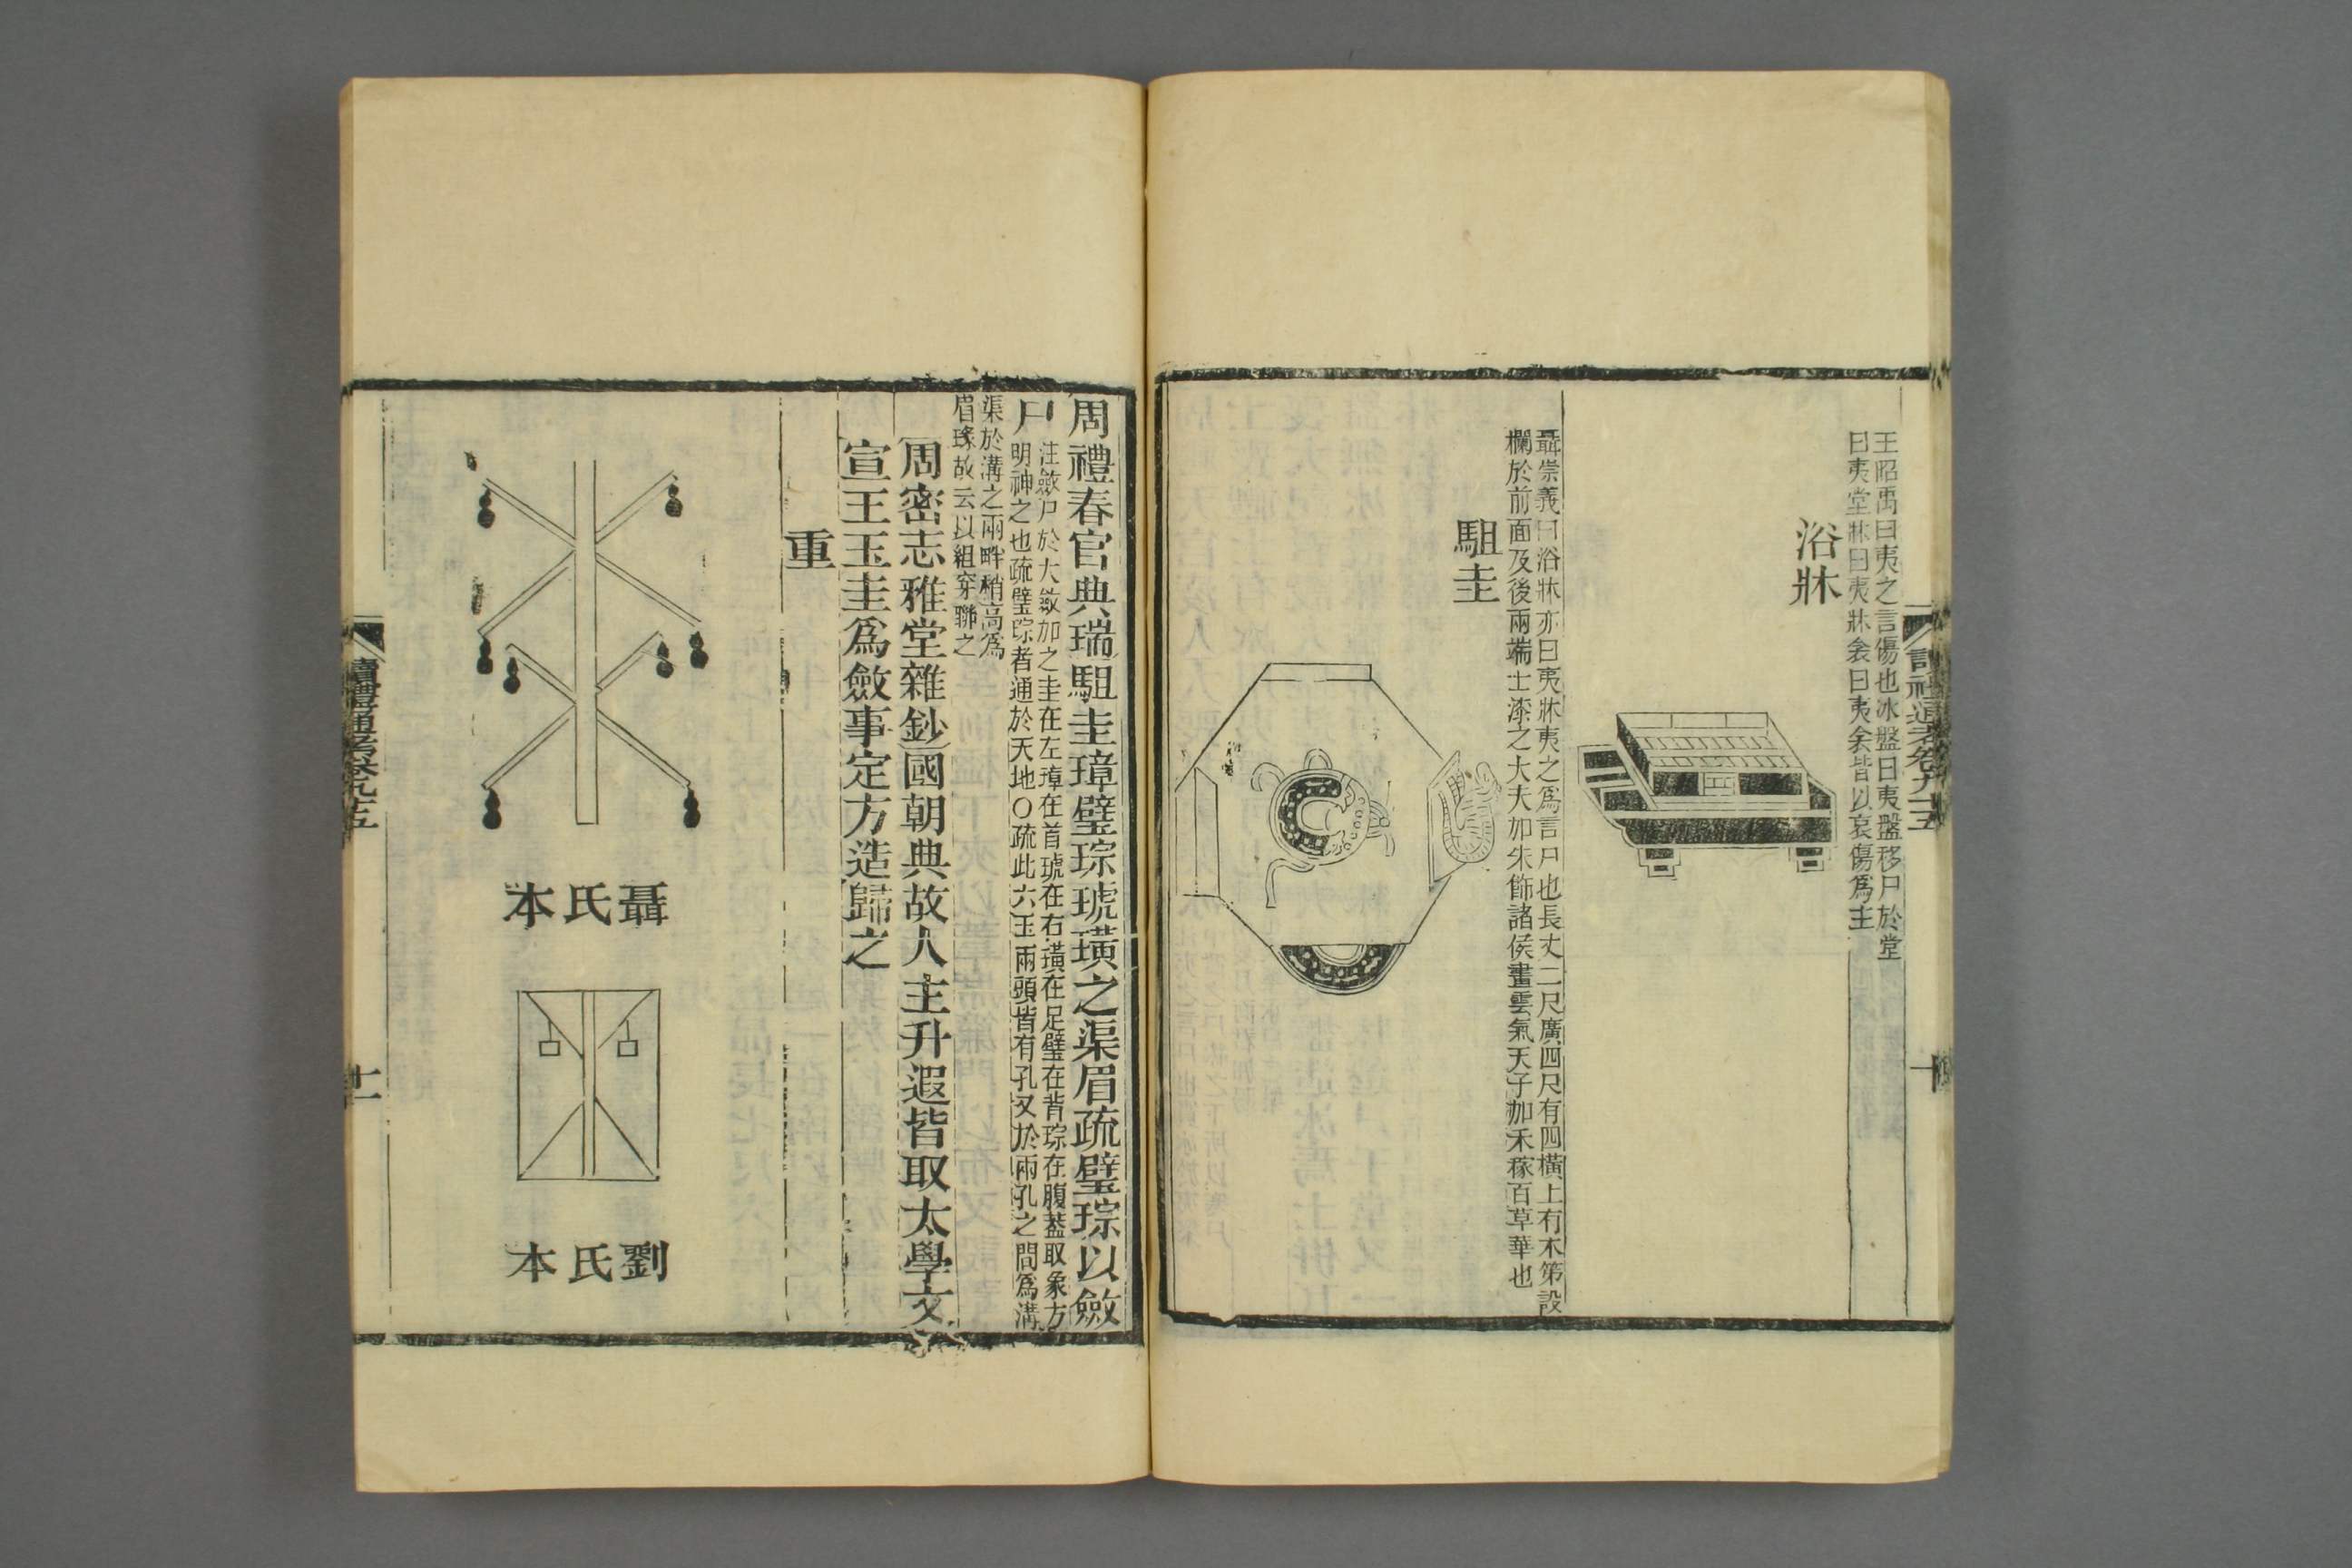 讀禮通考卷九十五
十
王昭禹曰夷之言傷也冰盤曰夷盤移尸於堂
曰夷堂牀曰夷牀衾曰夷衾皆以哀傷爲主
浴牀
聶崇義曰浴牀亦曰夷牀夷之爲言尸也長丈二尺廣四尺有四橫上有木笫設
欄於前面及後兩端士漆之大夫加朱飾諸侯畫雲氣天子加禾稼百草華也
駔圭
周禮春官典瑞駔圭璋璧琮琥璜之渠眉疏璧琮以斂
尸
注斂尸於大斂加之圭在左璋在首琥在右璜在足璧在背琮在腹葢取象方
明神之也疏璧琮者通於天地○疏此六玉兩頭皆有孔又於兩孔之間爲溝
渠於溝之兩畔稍高爲
眉瑑故云以組穿聯之
周密志雅堂雜鈔國朝典故人主升遐皆取太學文
宣王玉圭爲斂事定方造歸之
重
聶氏本
劉氏本
讀禮通考卷九十五
十一